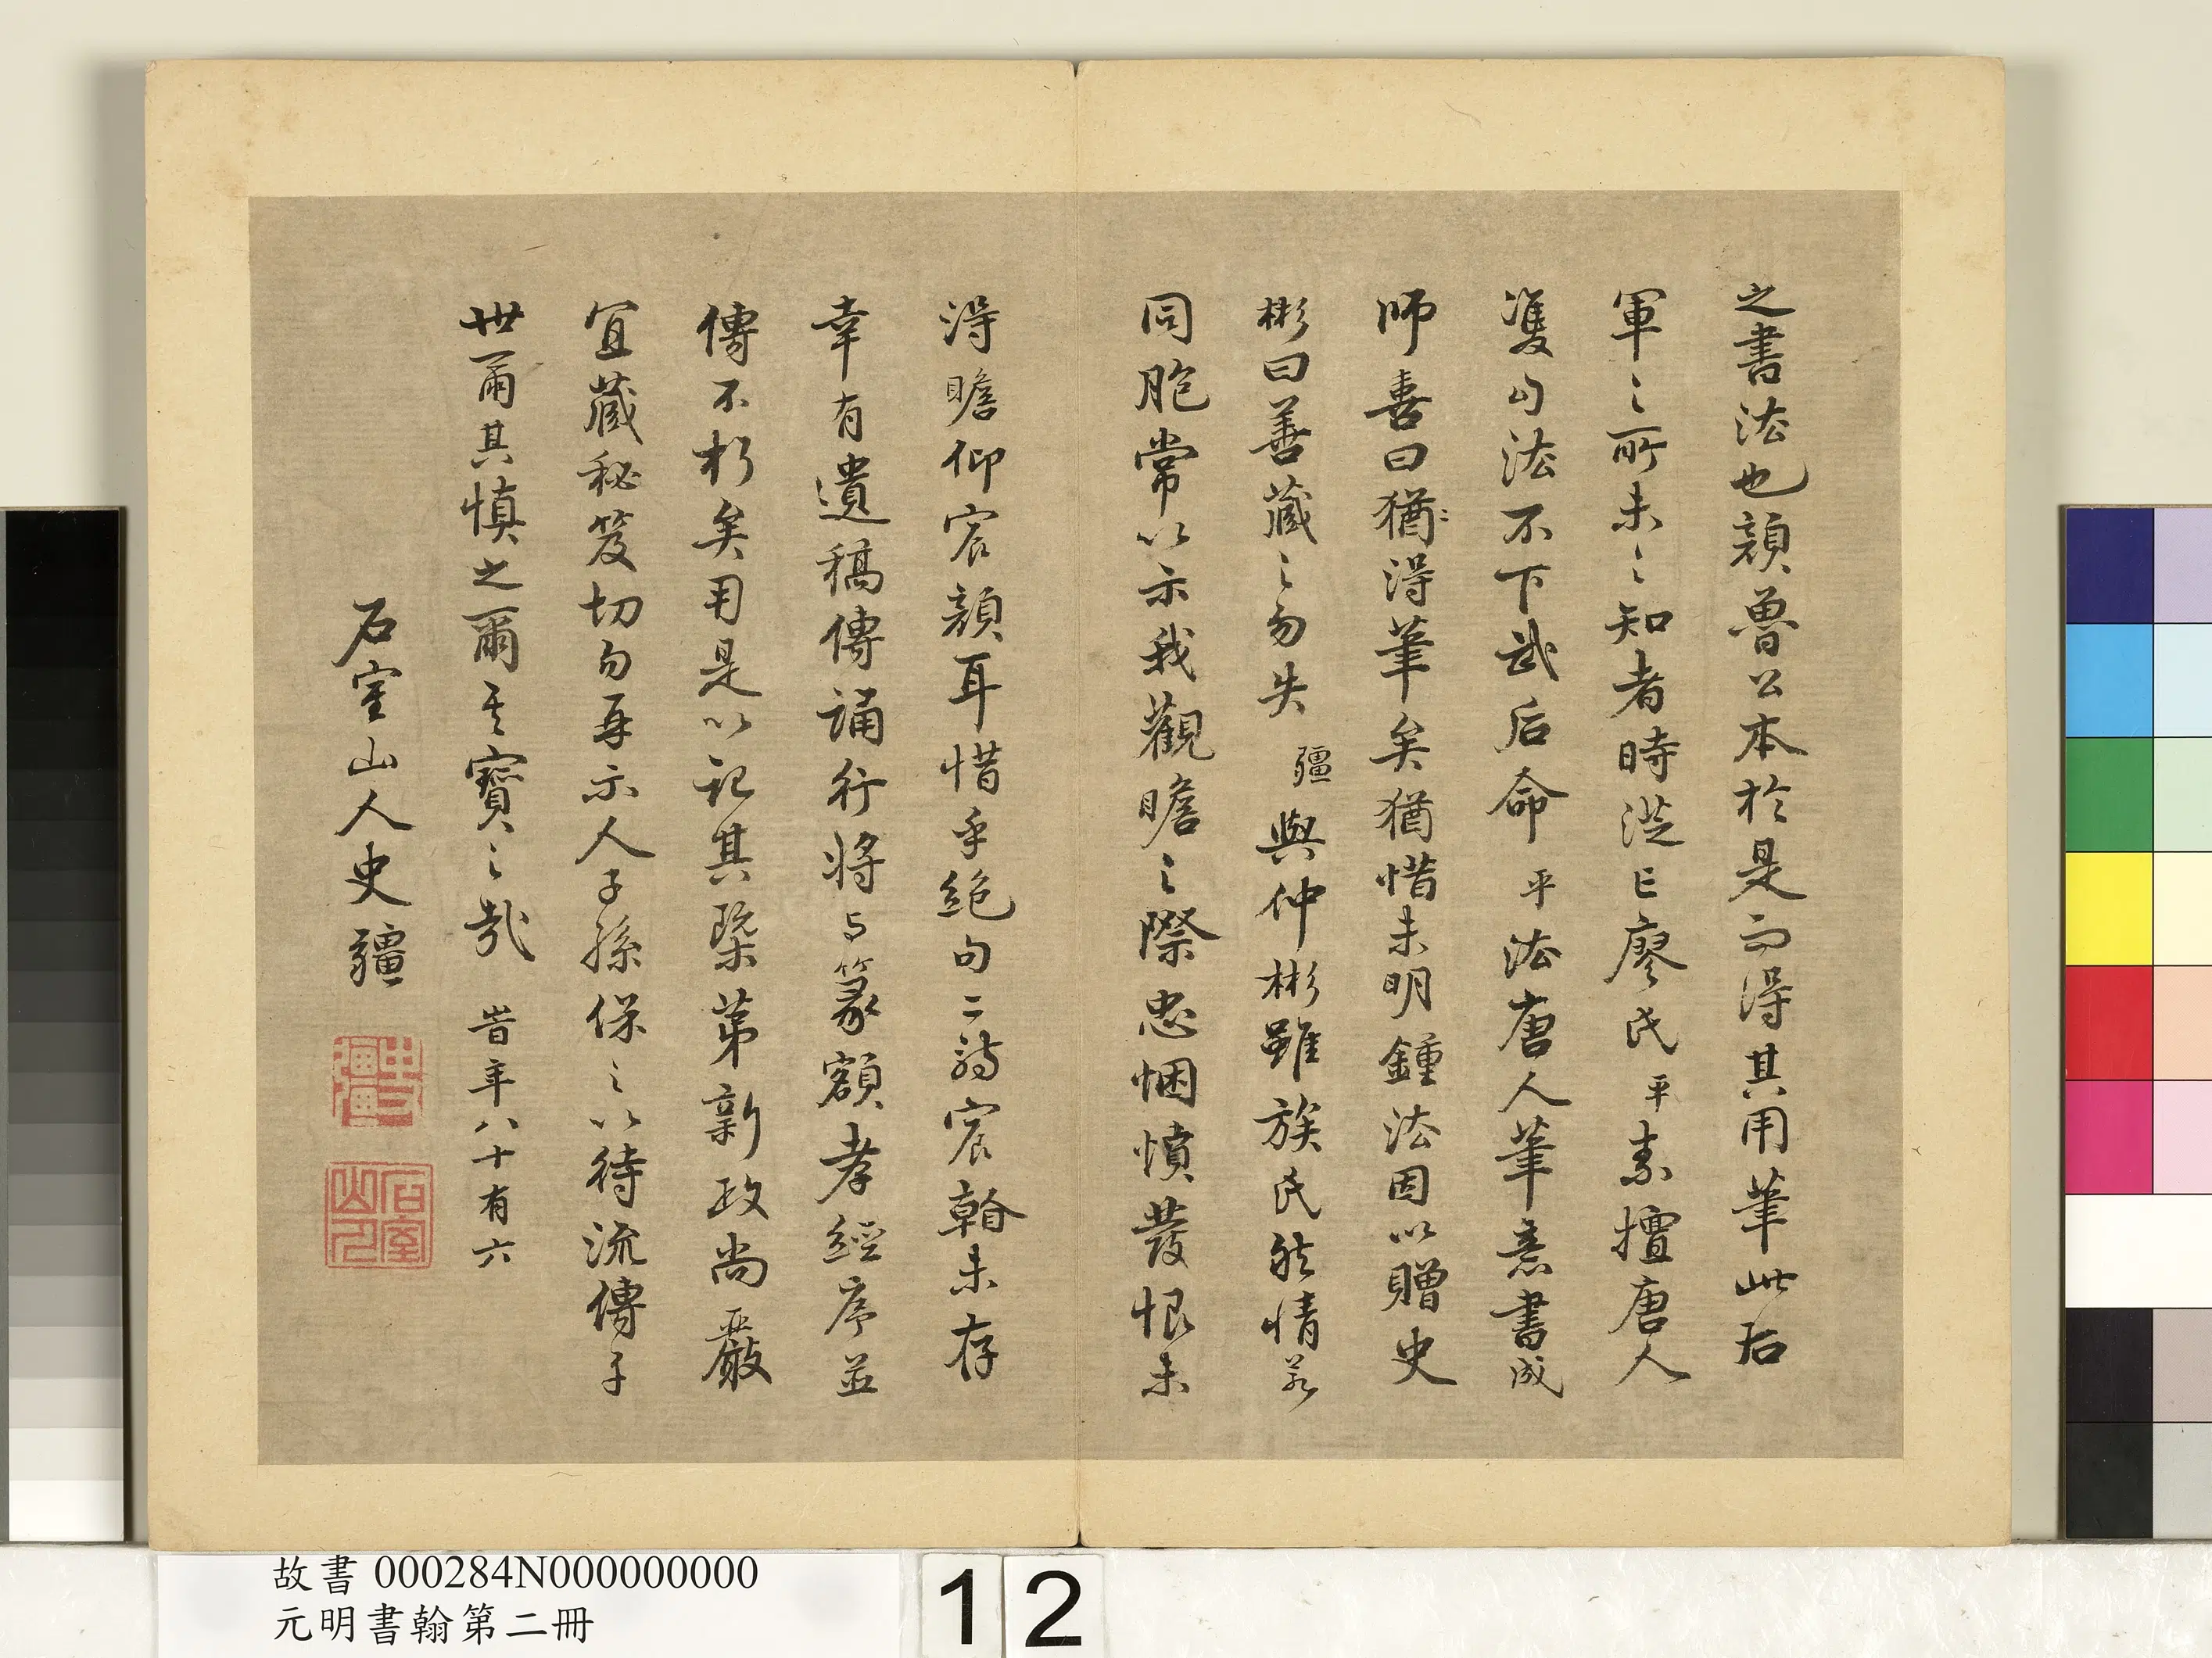 之書法也顏魯公本於是而得其用筆此右
軍之所未之知者時從廖氏平素擅唐人
雙勾法不下武后命平法唐人筆意書成
師喜曰猶猶得筆矣猶惜未明鍾法因以贈史
彬曰善藏之勿失彊與仲彬雖族氏然情若
同胞常以示我觀瞻之際忠悃憤發恨未
得瞻仰宸顏耳惜乎絕句二詩宸翰未存
幸有遺稿傳誦行將与篆額孝經序並
傳不朽矣用是以記其槩第新政尚嚴
宜藏秘笈切勿再示人子孫保之以待流傳子
世爾其慎之爾其寶之哉 旹年八十有六
石室山人史彊
史彊
石室山人
故書 000284N000000000
元明書翰第二冊
12